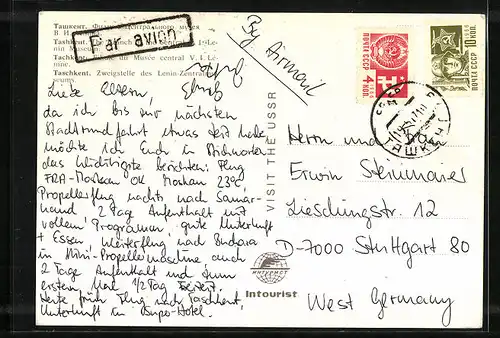 Ташкент. Филиал Центрального музея
В. И.
Tashkent. Branch
Lenin Museum
Tachkent. du Musée central V. I. Lé-
nine.
Taschkent. Zweigstelle des Lenin-Zentral-
museums.
Par avion
By Airmail
Liebe Eltern,
da ich bis zur nächsten
Stadtrundfahrt etwas Zeit habe
möchte ich Euch in Stichworten
das Wichtigste berichten: Flug
FRA-Moskau OK Moskau 23°C
Propellerflug nachts nach Samar-
kand 2 Tage Aufenthalt mit
vollem Programm, gute Unterkunft
+ Essen Weiterflug nach Buchara
in Mini-Propellermaschine auch
2 Tage Aufenthalt und zum
ersten Mal 1/2 Tag Freizeit,
Heute früh Flug nach Taschkent,
Unterkunft in Super-Hotel.
VISIT THE USSR
ИНТУРИСТ
Intourist
ПОЧТА СССР
4 КОП.
ПОЧТА СССР
10 КОП.
ТАШКЕНТ
Herrn und
Erwin Steinmaier
Lieschingstr. 12
D-7000 Stuttgart 80
West Germany